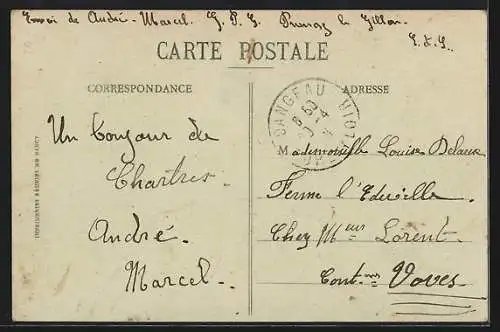 Envoi de André-Marcel. G. P. G. Prunay le Gillon.
E. & L.
CARTE POSTALE
CORRESPONDANCE
ADRESSE
DANGEAU
Un bonjour de
Chartres.
André.
Marcel.
Mademoiselle Louise Delaux
Ferme l'Edeville.
Chez Meur Lorent.
Voves
IMPRIMERIES RÉUNIES DE NANCY